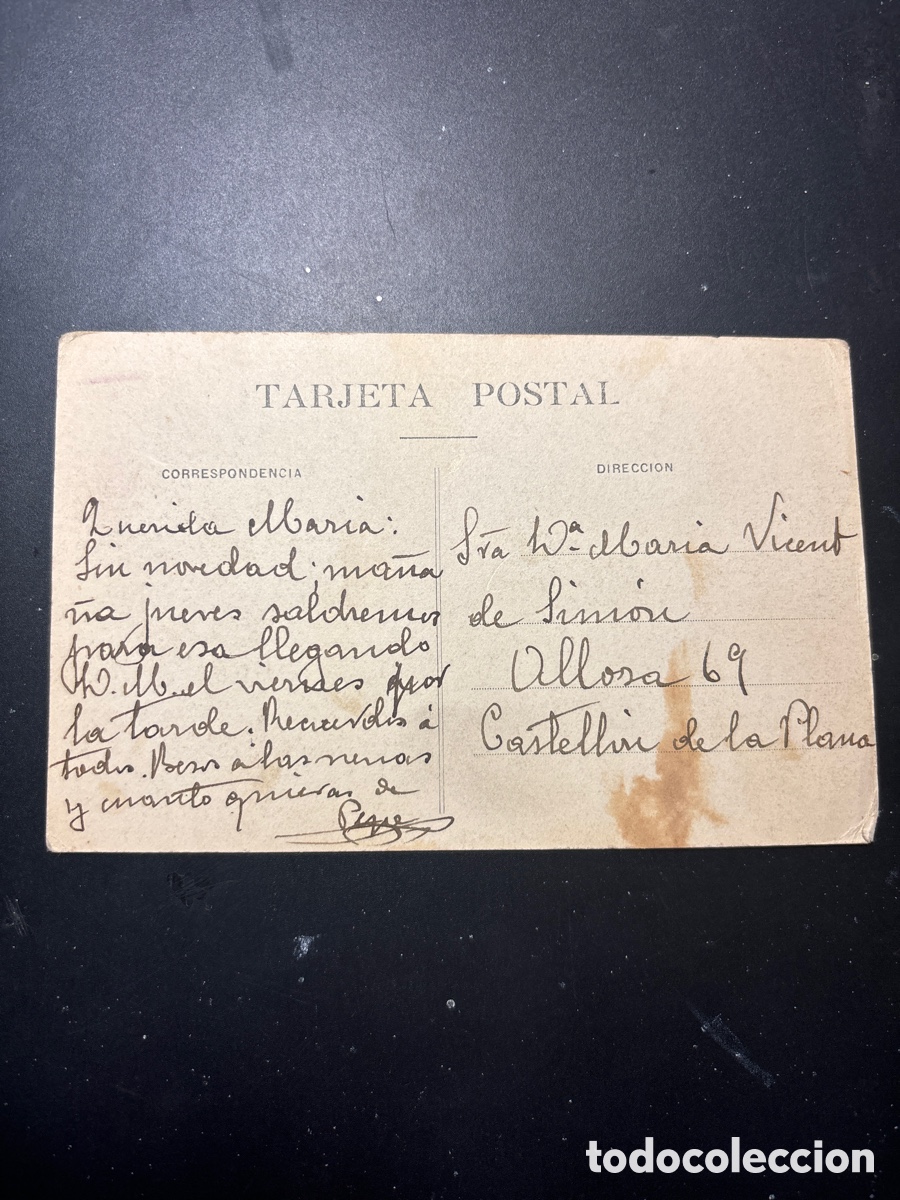 TARJETA POSTAL
CORRESPONDENCIA
Querida Maria:
Sin novedad; maña
na jueves saldremos
para esa llegando
D. M. el viernes por
la tarde. Recuerdos á
todos. Besos á las nenas
y cuanto quieras de
Pepe
DIRECCION
Sra Dª Maria Vicent
de Simón
Ullosa 69
Castellón de la Plana
todocoleccion